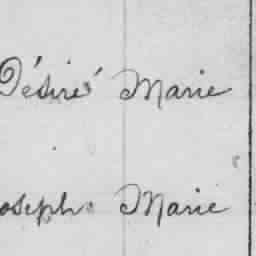 Désiré Marie
Joseph Marie